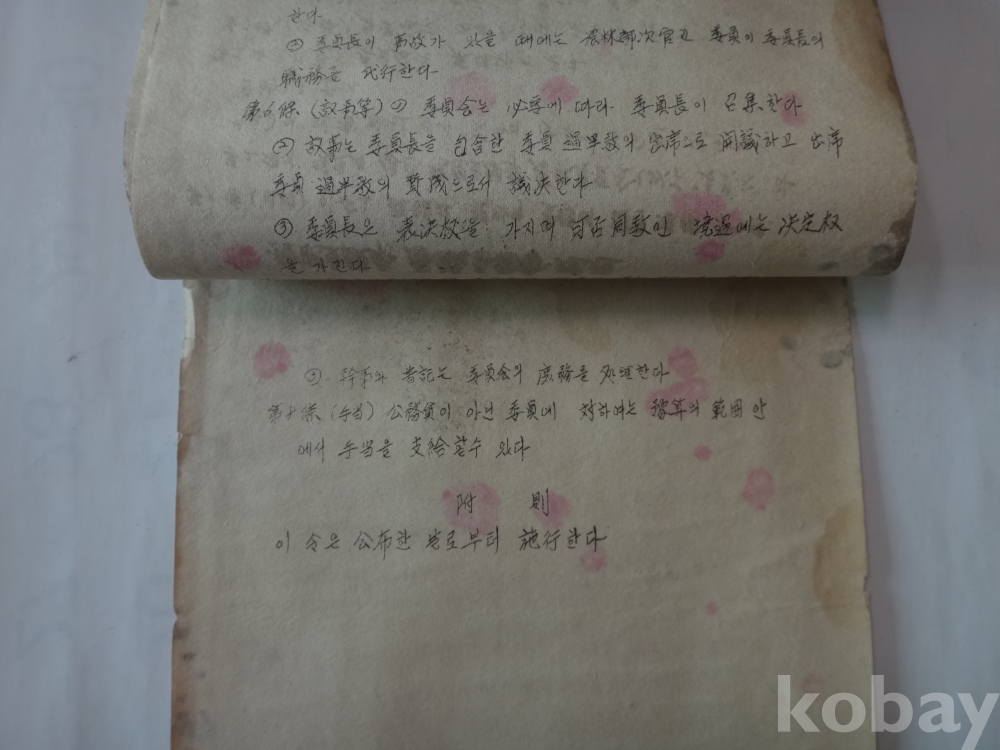 한다
② 委員長이 事故가 있을 때에는 農林部次官인 委員이 委員長의
職務를 代行한다
第6條 (議事等) ① 委員会는 必要에 따라 委員長이 召集한다
② 議事는 委員長을 包含한 委員 過半数의 出席으로 開議하고 出席
委員 過半数의 賛成으로서 議決한다
③ 委員長은 表決权을 가지며 可否同数인 境遇에는 決定权
을 가진다
③ 幹事와 書記는 委員会의 庶務을 処理한다
(手当) 公務員이 아닌 委員에 対하여는 豫算의 範囲 안
에서 手当을 支給할수 있다
附 則
이 令은 公布한 날로부터 施行한다
kobay